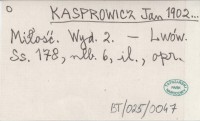 O
KASPROWICZ Jan 1902...
Miłość. Wyd. 2. — Lwów.
Ss. 178, nlb. 6, il., opr.
BT/025/0047